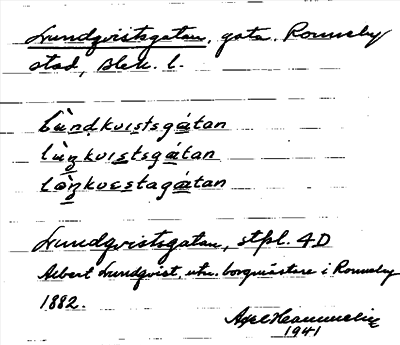 Lundqvistsgatan, gata. Ronneby
stad, Blek. l.
lùndkvistsgátan
lùŋkvistsgátan
lòŋkvestagátan
Lundqvistsgatan, stpl. 4D
Albert Lundqvist, utn. borgmästare i Ronneby
1882.
Axel
1941